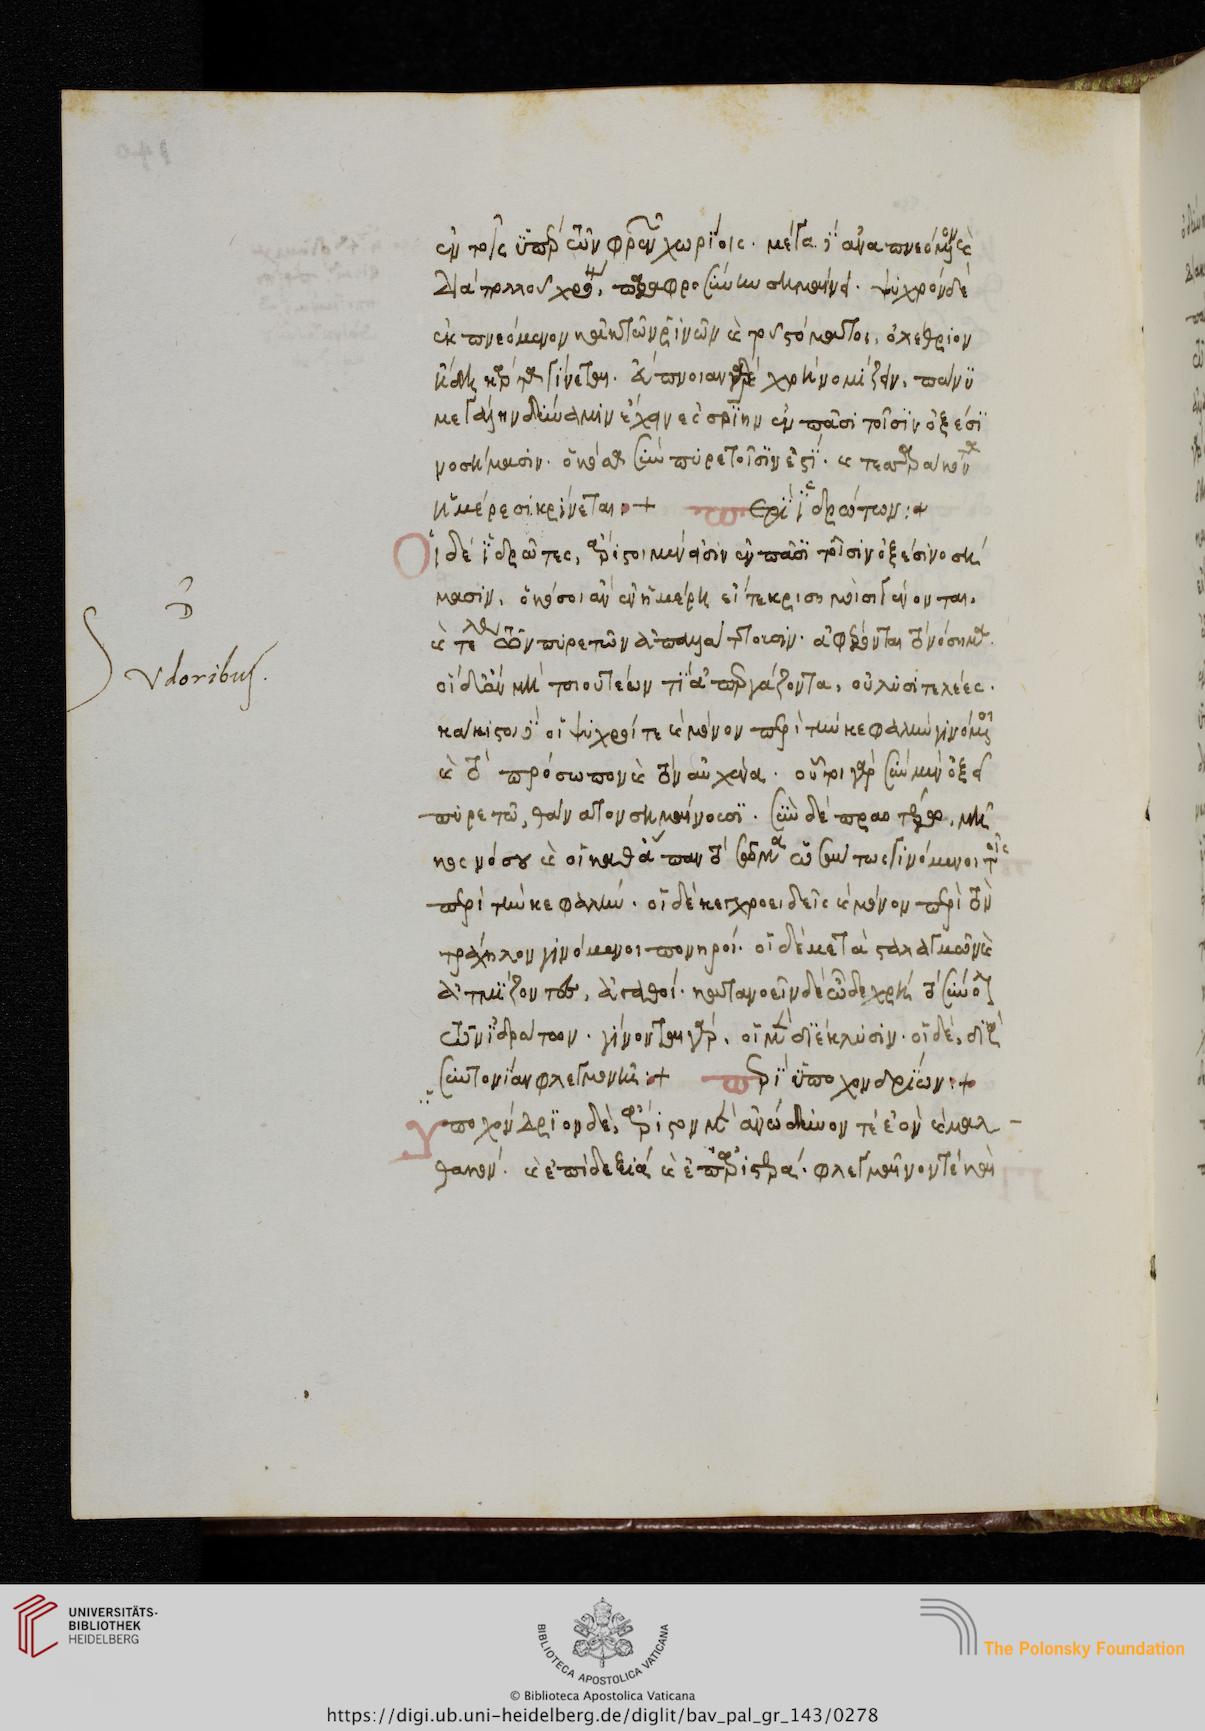 ἐν τοῖς ὑπὲρ τῶν φρενῶν χωρίοις. μέγα δὲ ἀναπνεόμενον καὶ
διὰ πολλοῦ χρόνου, παραφροσύνην σημαίνει. ψυχρὸν δὲ
ἐκπνεόμενον καὶ ἐκ τῶν ῥινῶν καὶ τοῦ στόματος, ὀλέθριον
κάρτα γίνεται. εὔπνοιαν δὲ χρὴ νομίζειν, πάνυ
μεγάλην δύναμιν ἔχειν ἐς σωτηρίην ἐν πᾶσι τοῖσιν ὀξέσι
νοσήμασιν. ὁκόσα σὺν πυρετοῖσιν ἐστί. καὶ τεσσαράκοντα
ἡμέρῃσι κρίνεται :+ Περὶ ἱδρώτων :+
Οἱ δὲ ἱδρῶτες, ἄριστοι μέν εἰσιν ἐν πᾶσι τοῖσιν ὀξέσι νοσή
μασιν, ὁκόσοι ἂν ἐν ἡμέρῃ
καὶ τελ πυρετῶν ἀπαλλάττουσιν.
οἱ δ' ἂν μὴ τουτέων τι ἀπεργάζονται, οὐ λυσιτελέες.
κάκιστοι δὲ οἱ ψυχροί τε καὶ μόνον περὶ τὴν κεφαλὴν γινόμενοι
καὶ τὸ πρόσωπον καὶ τὸν αὐχένα. οὗτοι γὰρ σὺν μὲν ὀξεῖ
πυρετῷ, θάνατον σημαίνουσι. σὺν δὲ πραοτέρῳ, μῆ
κος νόσου καὶ οἱ κατὰ πᾶν τὸ σῶμα ὡσαύτως γινόμενοι τοῖς
περὶ τὴν κεφαλήν. οἱ δὲ κεγχροειδεῖς καὶ μόνον περὶ τὸν
τράχηλον γινόμενοι πονηροί. οἱ δὲ μετὰ σταλαγμῶν καὶ
ἀτμίζοντες, ἀγαθοί. κατανοεῖν δὲ ὧδε χρὴ τὸ σύνολον
τῶν ἱδρώτων. γίνονται γὰρ, οἱ μὲν δι' ἔκλυσιν. οἱ δὲ, διὰ
συντονίαν φλεγμονῆς :+ Περὶ ὑποχονδρίων :+
Ὑποχόνδριον δὲ, ἄριστον μὲν ἀνώδυνον τε ἐὸν καὶ μαλ-
θακόν. καὶ ἐπὶ δεξιὰ καὶ ἐπ' ἀριστερά. φλεγμαῖνον τε καὶ
Sudoribus.
UNIVERSITÄTS-
BIBLIOTHEK
HEIDELBERG
BIBLIOTECA APOSTOLICA VATICANA
The Polonsky Foundation
© Biblioteca Apostolica Vaticana
https://digi.ub.uni-heidelberg.de/diglit/bav_pal_gr_143/0278